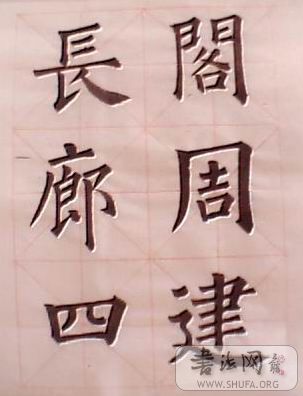 閣周建
長廊四
書法网
WWW.SHUFA.ORG